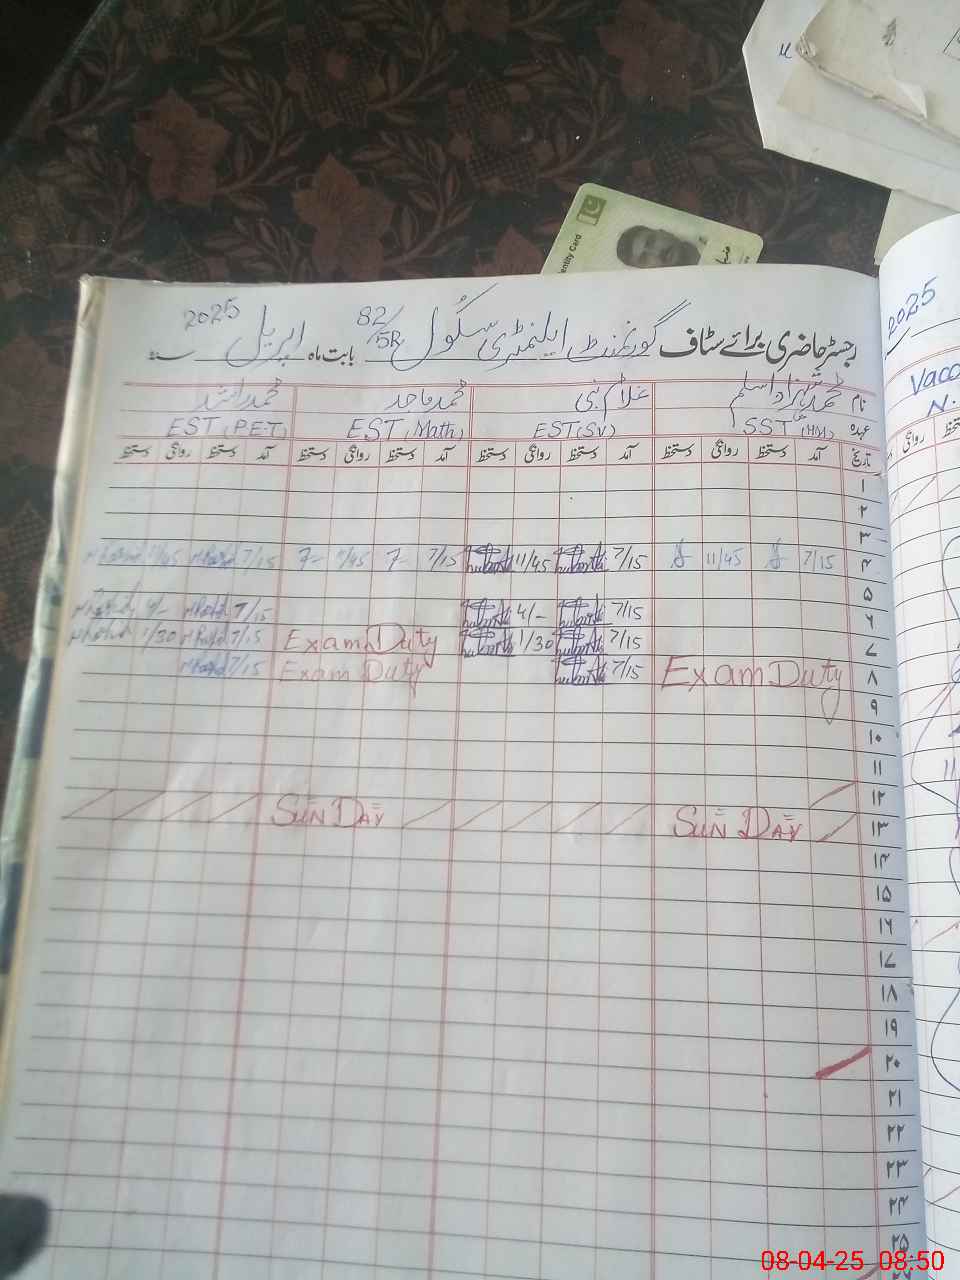 رجسٹر حاضری برائے سٹاف گورنمنٹ ایلیمنٹری سکول 82/5R بابت ماہ اپریل سنہ 2025
نام محمد شہزاد اسلم غلام نبی محمد ماجد محمد راشد
عہدہ SST (HM) EST (SV) EST (Math) EST (P.E.T)
تاریخ آمد دستخط روانگی دستخط آمد دستخط روانگی دستخط آمد دستخط روانگی دستخط آمد دستخط روانگی دستخط
۱
۲
۳
۴ 7/15 11/45 7/15 11/45 7/15 11/45 7/15 11/45
۵
۶ 7/15 4/- 7/15 4/-
۷ 7/15 1/30 Exam Duty 7/15 1/30
۸ Exam Duty 7/15 Exam Duty 7/15
۹
۱۰
۱۱
۱۲
۱۳ SUN DAY SUN DAY
۱۴
۱۵
۱۶
۱۷
۱۸
۱۹
۲۰
۲۱
۲۲
۲۳
۲۴
۲۵
2025
Vacc
N.
روانگی
entity Card
08-04-25 08:50